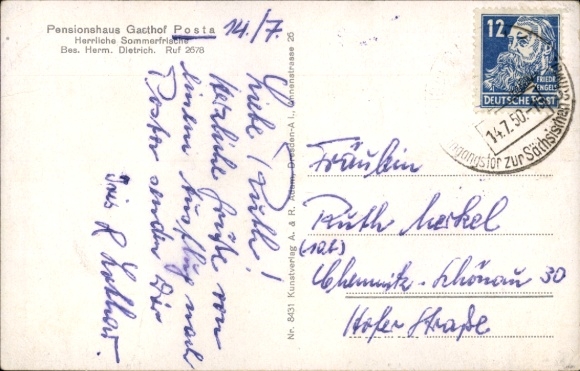 Pensionshaus Gasthof Posta
Herrliche Sommerfrische
Bes. Herm. Dietrich. Ruf 2678
14./7.
Liebe Ruth!
Herzliche Grüße von
einem Ausflug nach
Posta senden Dir
Iris & Lothar.
Nr. 8431 Kunstverlag A. & R. Adam, Dresden-A 1, Annenstrasse 25
12
FRIEDR.
ENGELS
DEUTSCHE POST
14.7.50.
Eingangstor zur Sächsischen
Fräulein
Ruth Merkel
Chemnitz-Schönau 30
Hofer Straße